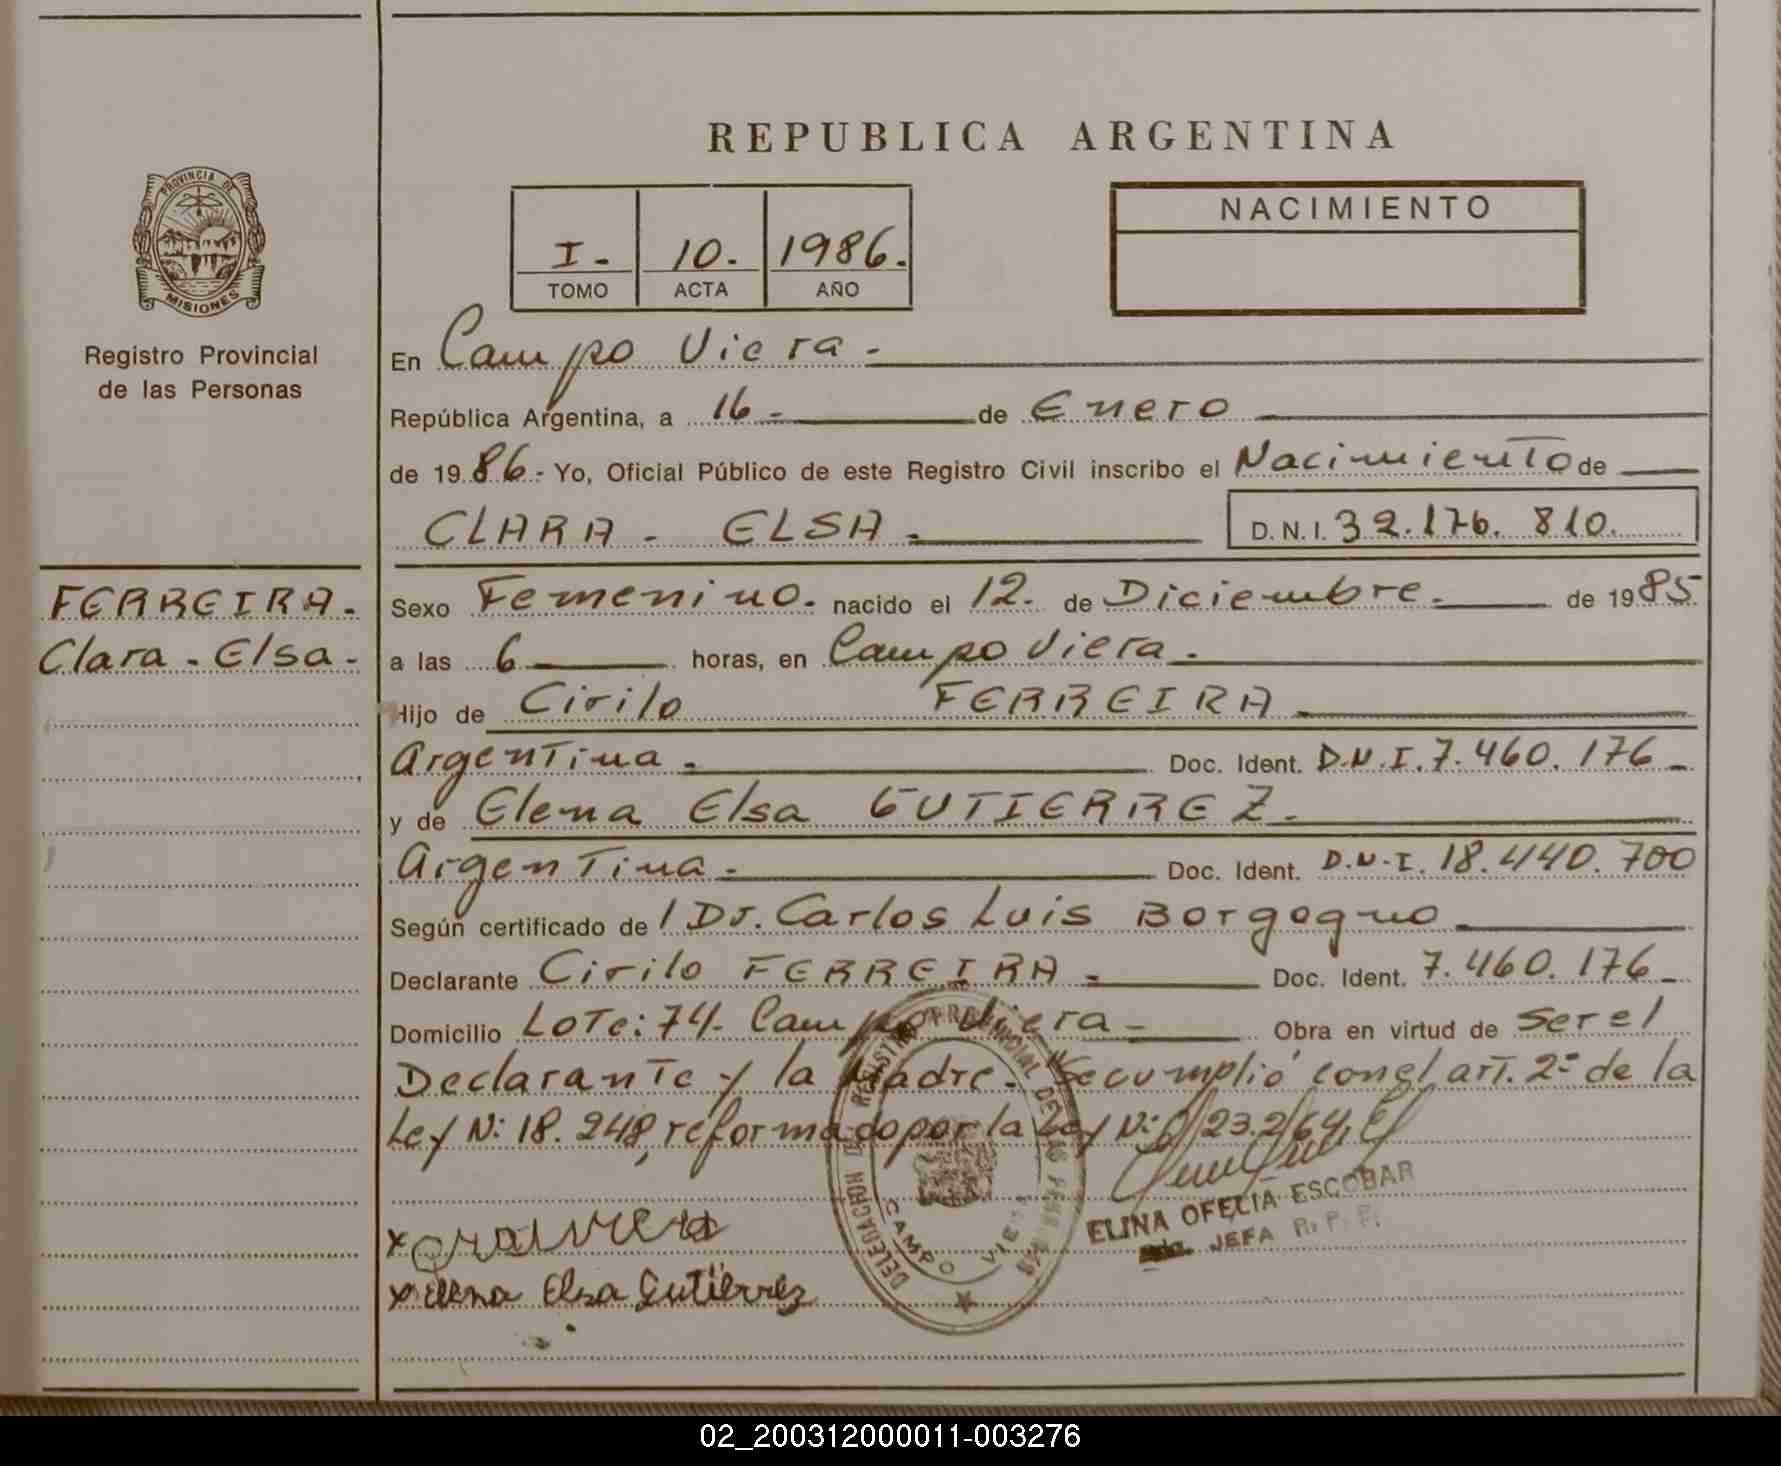 REPUBLICA ARGENTINA
PROVINCIA DE
MISIONES
Registro Provincial
de las Personas
I.-
10.-
1986.-
TOMO
ACTA
AÑO
NACIMIENTO
En Campo Viera.-
República Argentina, a 16.- de Enero
de 1986.- Yo, Oficial Público de este Registro Civil inscribo el Nacimiento de
CLARA - ELSA.-
D.N.I. 32.176.810.
FERREIRA.-
Clara - Elsa.-
Sexo Femenino.- nacido el 12.- de Diciembre.- de 1985
a las 6 horas, en Campo Viera.-
Hijo de Cirilo FERREIRA
Argentina.- Doc. Ident. D.N.I. 7.460.176-
y de Elena Elsa GUTIERREZ.-
Argentina.- Doc. Ident. D.N.I. 18.440.700
Según certificado de l Dr. Carlos Luis Borgogno
Declarante Cirilo FERREIRA- Doc. Ident. 7.460.176-
Domicilio Lote: 74- Campo Viera- Obra en virtud de ser el
Declarante y la Madre.- "Se cumplió con el art. 2º de la
Ley Nº 18.248, reformado por la Ley Nº
DELEGACION DEL REGISTRO PROVINCIAL DE LAS PERSONAS
CAMPO VIERA
ELINA OFELIA ESCOBAR
JEFA R. P. P.
x Elena Elsa Gutiérrez
02_200312000011-003276